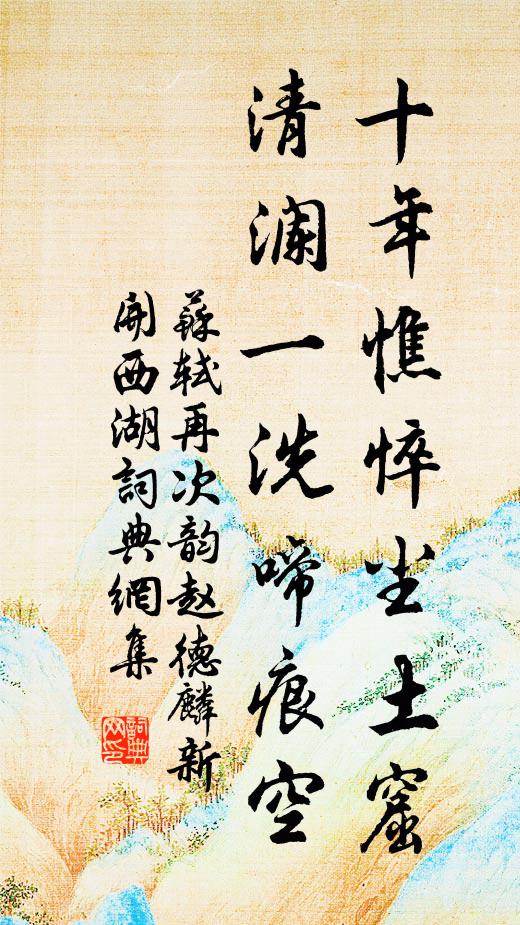 十年憔悴尘土窟
清澜一洗啼痕空
蘇轼再次韵赵德麟新
開西湖詞典網集
詞典
网印